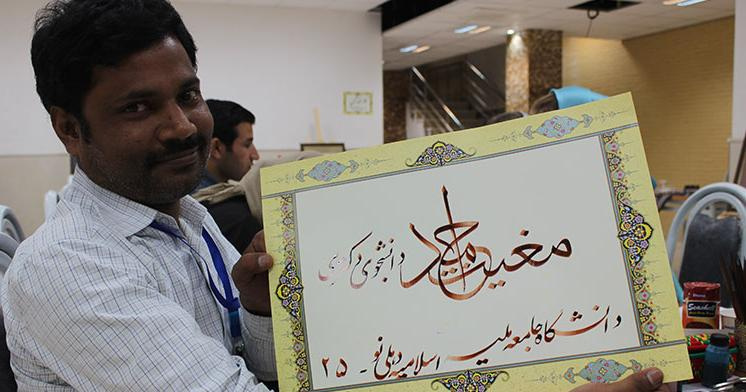 مغیث احمد دانشجوی دکتری
دانشگاه جامعه ملیه اسلامیه دهلی نو - ۲۵
Seashell